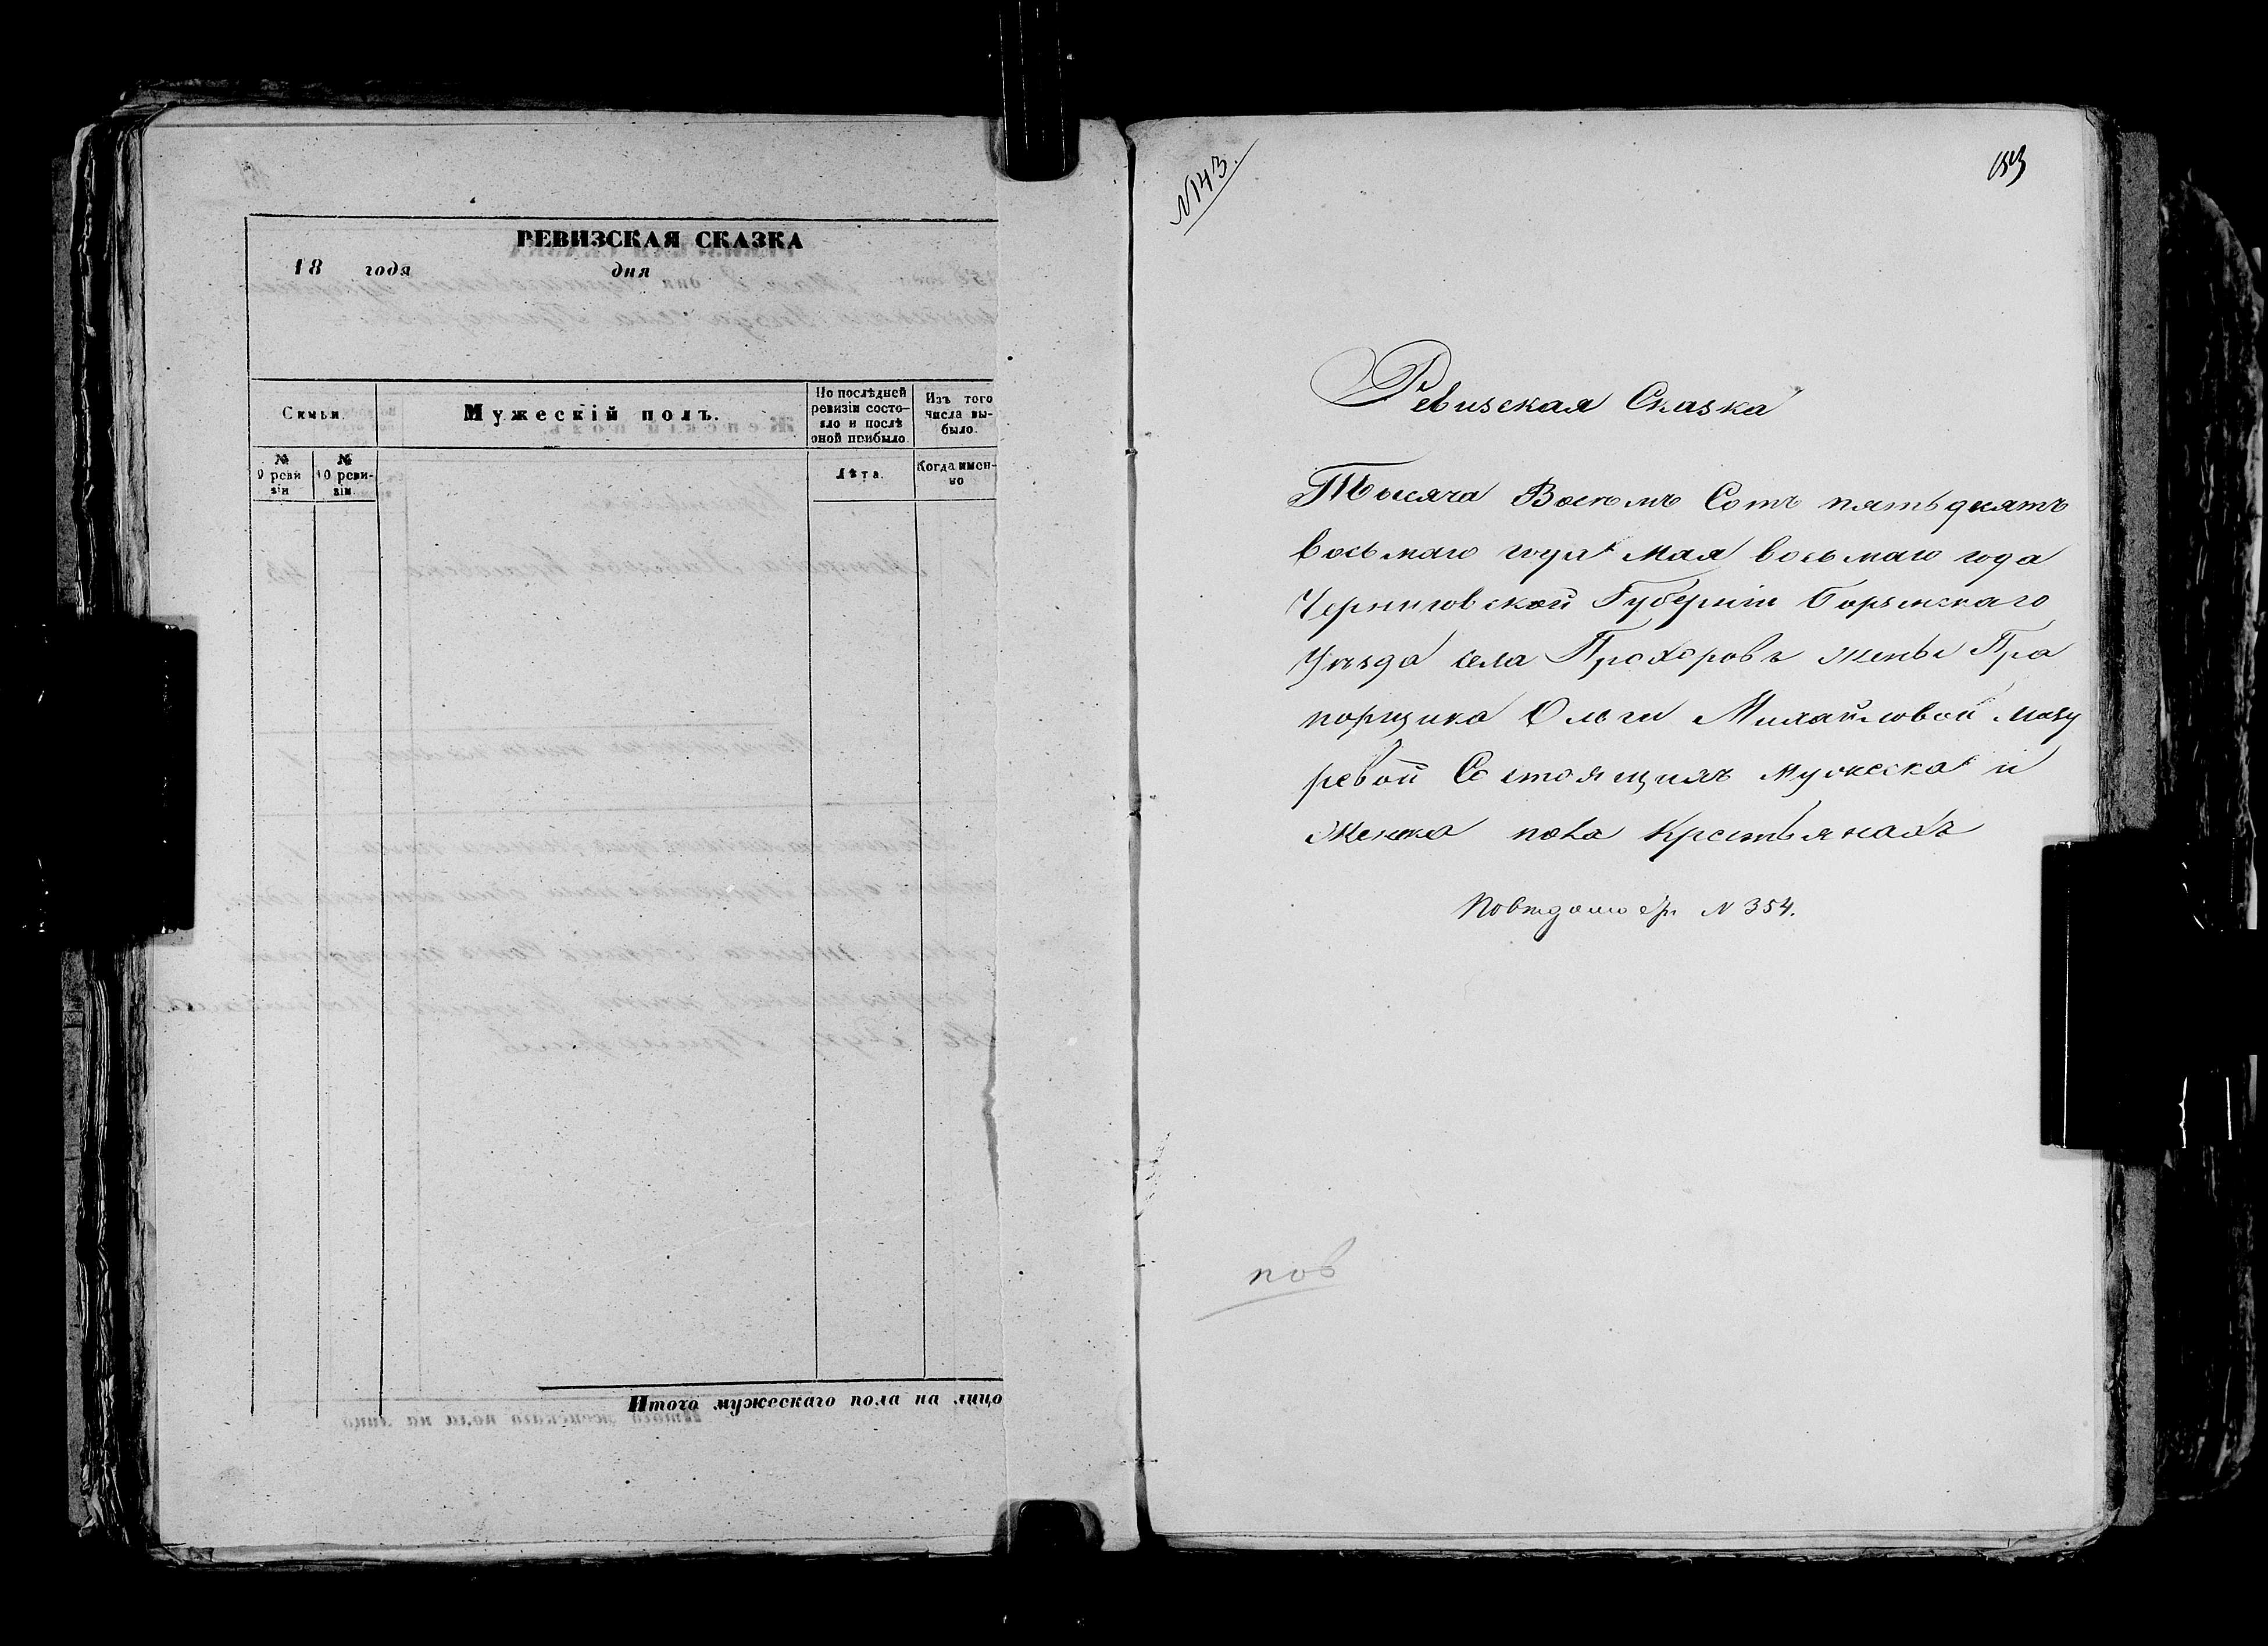 РЕВИЗСКАЯ СКАЗКА
18 года дня
Семьи.
Мужескій полъ.
По послѣдней ревизіи состо-
яло и послѣ оной прибыло.
Изъ того числа вы-
было.
№ 9 реви
зіи
№ 10 реви-
зіи.
Лѣта.
Когда имен-
но
Итого мужескаго пола на лицо
N143.
153
Ревизская Сказка
Тысяча Восемъ Сотъ пятьдесятъ
восьмаго года Мая восьмаго года
Черниговской Губерніи Борзенскаго
Уѣзда села Прохоровъ жены Пра
порщика Ольги Михайловой Мазу
ревой Состоящихъ мужеска и
Женска пола Крестьянахъ
N 354.
пов